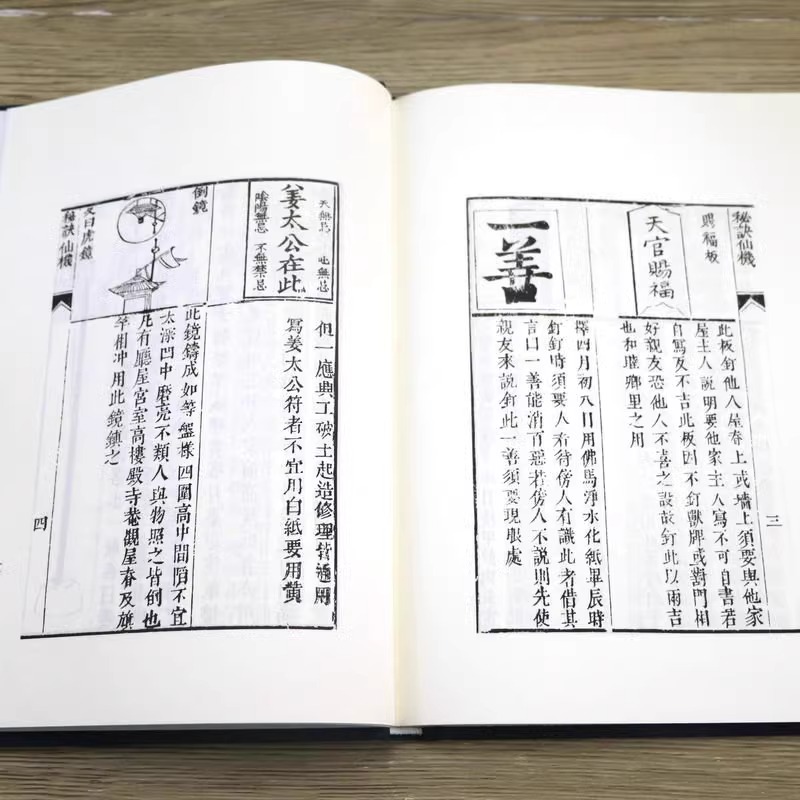 秘訣仙機
三
賜福板
天官賜福
此板釘他人屋脊上或墻上須要與他家
屋主人說明要他家主人寫不可自書若
自寫反不吉此板因不釘獸牌或對門相
好親友恐他人不喜之設故釘此以兩吉
也和睦鄉里之用
一善
擇四月初八日用佛馬淨水化紙畢辰時
釘釘時須要人看待傍人有識此者借其
言曰一善能消百惡若傍人不說則先使
親友來說釘此一善須要現眼處
天無忌 地無忌
姜太公在此
陰陽無忌 不無禁忌
但一應興工破土起造修理皆通用
寫姜太公符者不宜用白紙要用黃
倒鏡
又曰虎鏡
此鏡鑄成如等盤樣四圍高中間陷不宜
太深凹中磨亮不類人與物照之皆倒也
凡有廳屋宮室高樓殿寺菴觀屋脊及旗
竿相冲用此鏡鎮之
秘訣仙機
四